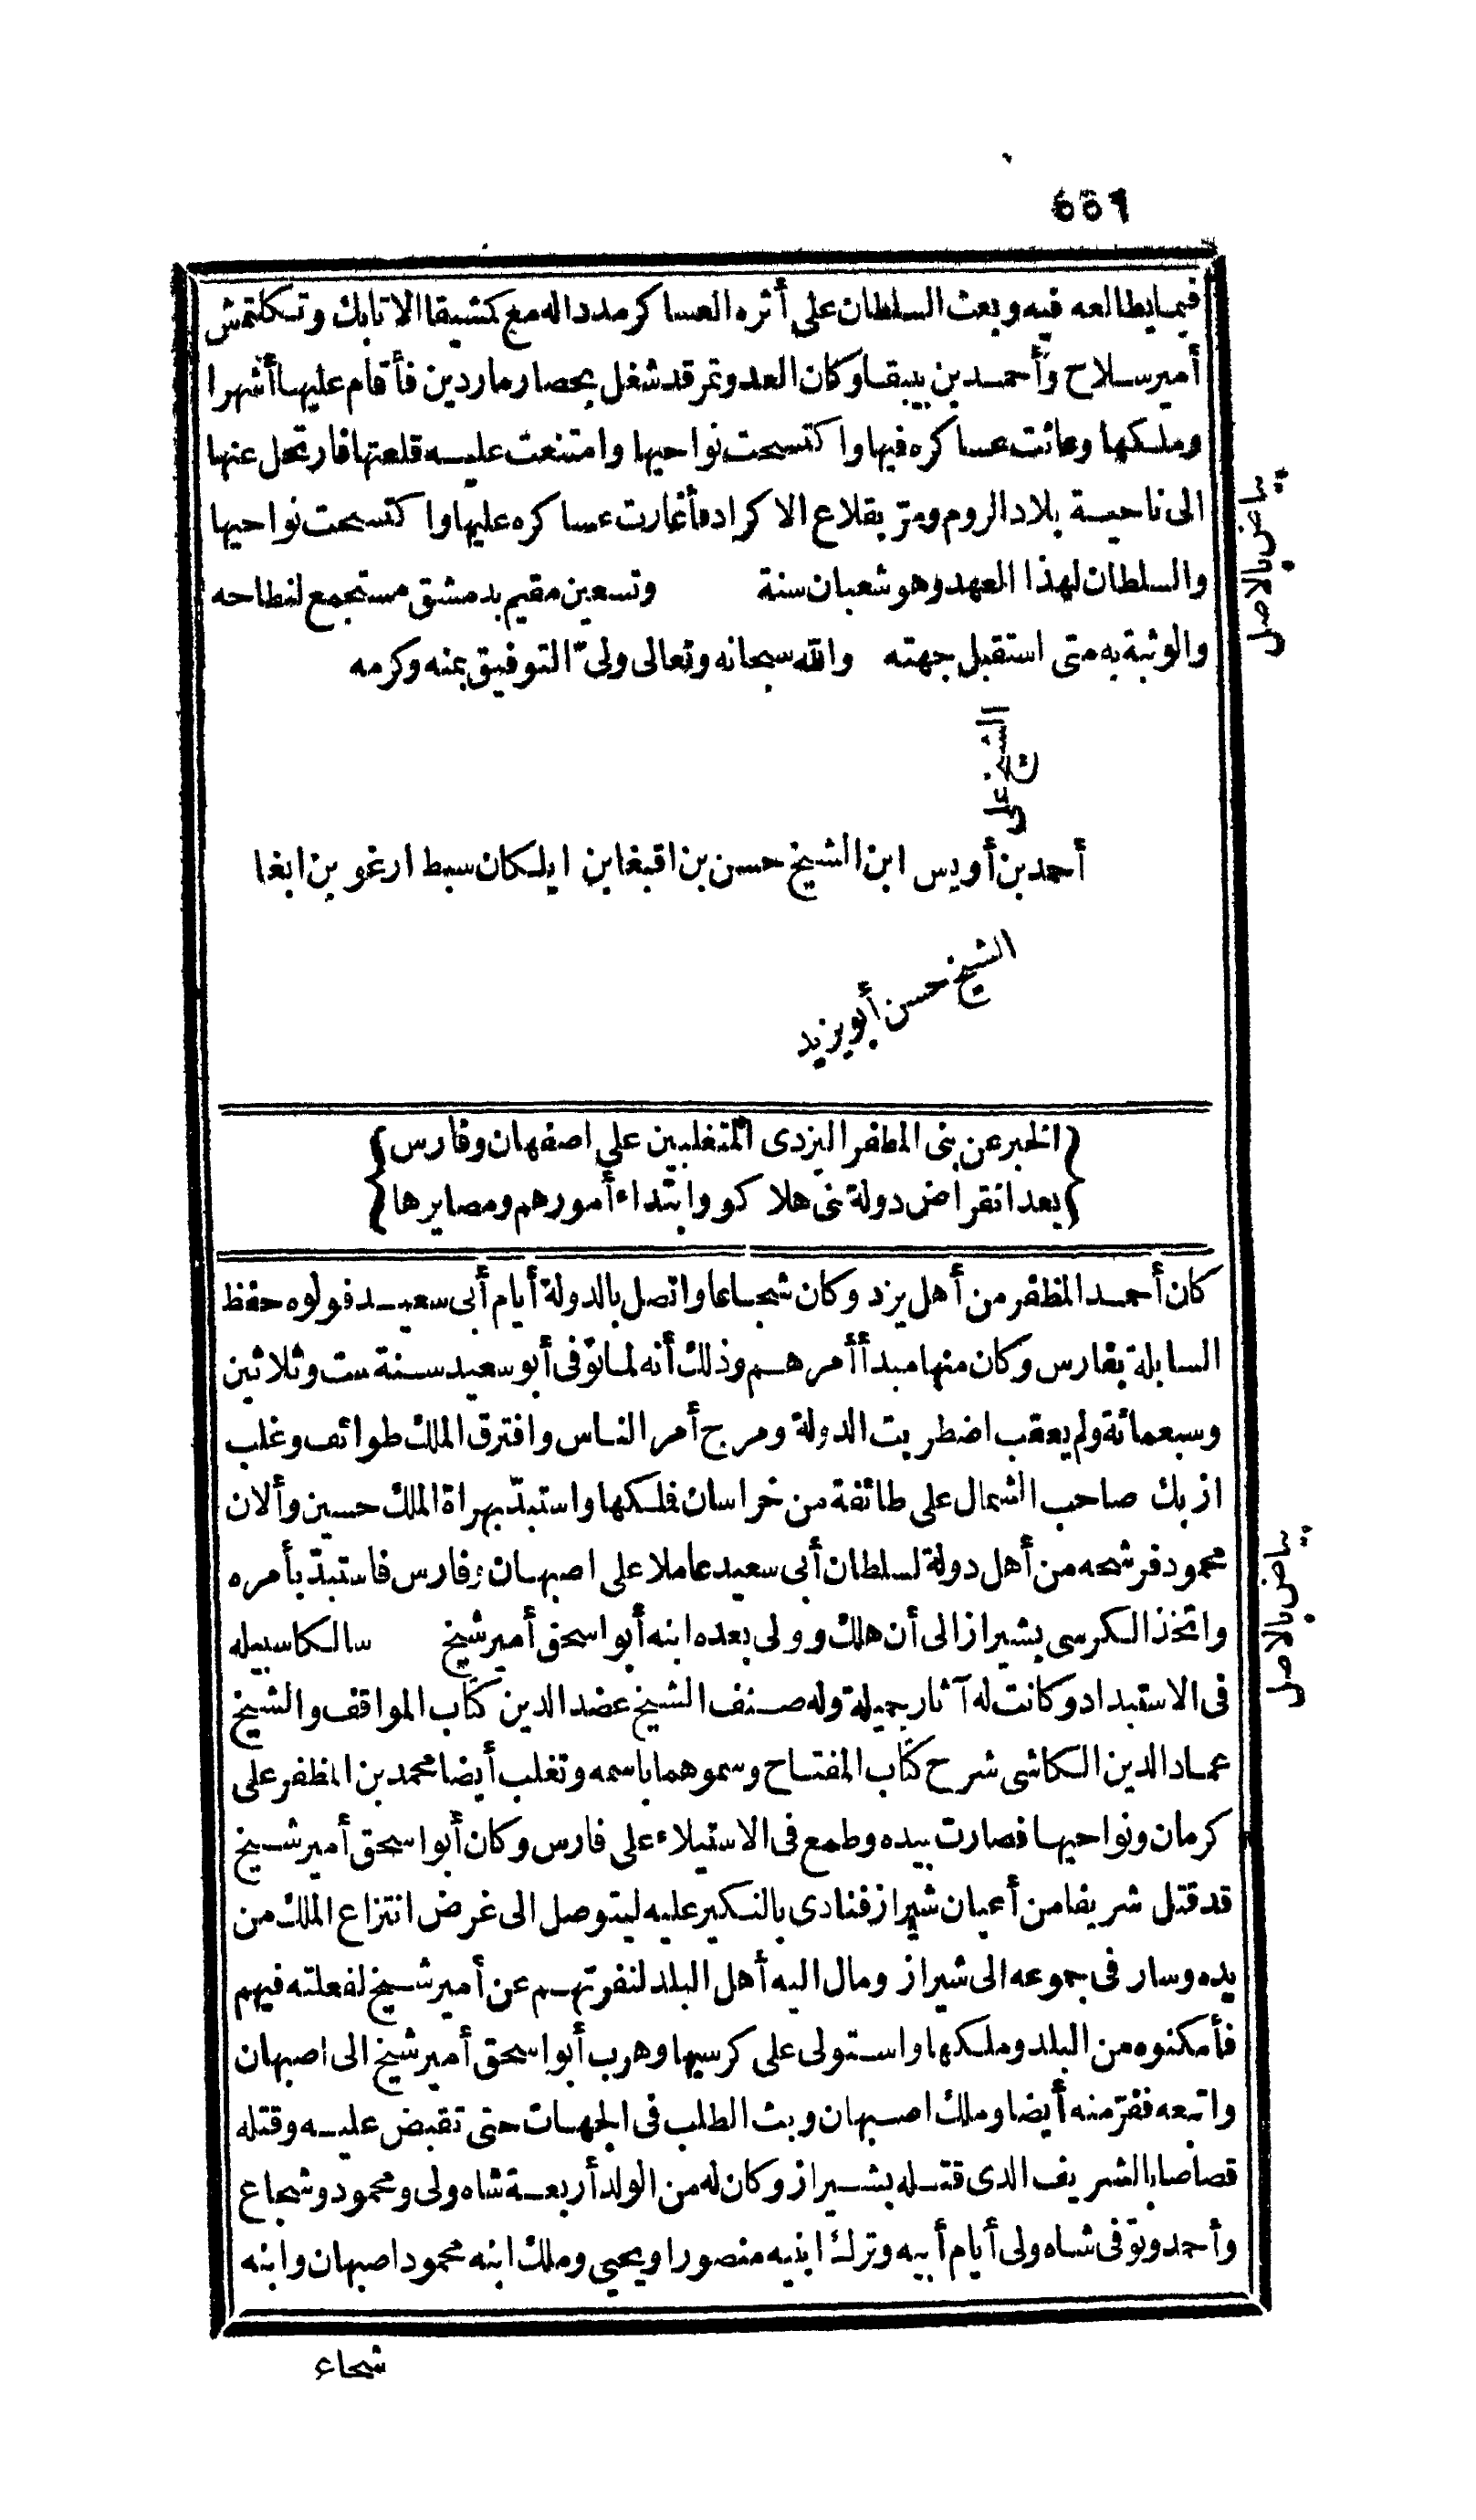 ٥٥٦
فيما يطالعه فيه وبعث السلطان على أثره العساكر مددا له مع كمشبقا الاتابك وتكلتمش
أمير سلاح وأحمد بن بيبقا وكان العدو تمر قد شغل بحصار ماردين فأقام عليها أشهرا
وملكها وعاثت عساكره فيها واكتسحت نواحيها وامتنعت عليه قلعتها فارتحل عنها
الى ناحية بلاد الروم ومرّ بقلاع الاكراد فأغارت عساكره عليها واكتسحت نواحيها
والسلطان لهذا العهد وهو شعبان سنة وتسعين مقيم بدمشق مستجمع لنطاحه
والوثبة به متى استقبل جهته والله سبحانه وتعالى ولىّ التوفيق بمنه وكرمه
بياض بالاصل
الشيخ على
أحمد بن أويس ابن الشيخ حسن بن اقبغا بن ايلكان سبط ارغو بن ابغا
الشيخ حسن أبو يزيد
{الخبر عن بنى المظفر اليزدى المتغلبين على اصفهان وفارس}
{بعد انقراض دولة بنى هلاكو وابتداء أمورهم ومصايرها}
كان أحمد المظفر من أهل يزد وكان شجاعا واتصل بالدولة أيام أبى سعيد فولوه حفظ
السابلة بفارس وكان منها مبدأ أمرهم وذلك أنه لما توفى أبو سعيد سنة ست وثلاثين
وسبعمائة ولم يعقب اضطربت الدولة ومرج أمر الناس وافترق الملك طوائف وغلب
ازبك صاحب الشمال على طائفة من خراسان فلكها واستبدّ بهراة الملك حسين وألان
محمود فرشحه من أهل دولة لسلطان أبى سعيد عاملا على اصبهان وفارس فاستبدّ بأمره
واتخذ الكرسى بشيراز الى أن هلك وولى بعده ابنه أبو اسحق أمير شيخ سالكا سبيله
بياض بالاصل
فى الاستبداد وكانت له آثار جميلة وله صنف الشيخ عضد الدين كتاب المواقف والشيخ
عماد الدين الكاشى شرح كتاب المفتاح وسموهما باسمه وتغلب أيضا محمد بن المظفر على
كرمان ونواحيها فصارت بيده وطمع فى الاستيلاء على فارس وكان أبو اسحق أمير شيخ
قد قتل شريفا من أعيان شيراز فنادى بالنكير عليه ليتوصل الى غرض انتزاع الملك من
يده وسار فى جموعه الى شيراز ومال اليه أهل البلد لنفرتهم عن أمير شيخ لفعلته فيهم
فأمكنوه من البلد وملكها واستولى على كرسيها وهرب أبو اسحق أمير شيخ الى اصبهان
واتبعه ففرّ منه أيضا وملك اصبهان وبث الطلب فى الجهات حتى تقبض عليه وقتله
قصاصا بالشريف الذى قتله بشيراز وكان له من الولد أربعة شاه ولى ومحمود وشجاع
وأحمد وتوفى شاه ولى أيام أبيه وترك ابنيه منصورا ويحيى وملك ابنه محمود اصبهان وابنه
شجاع